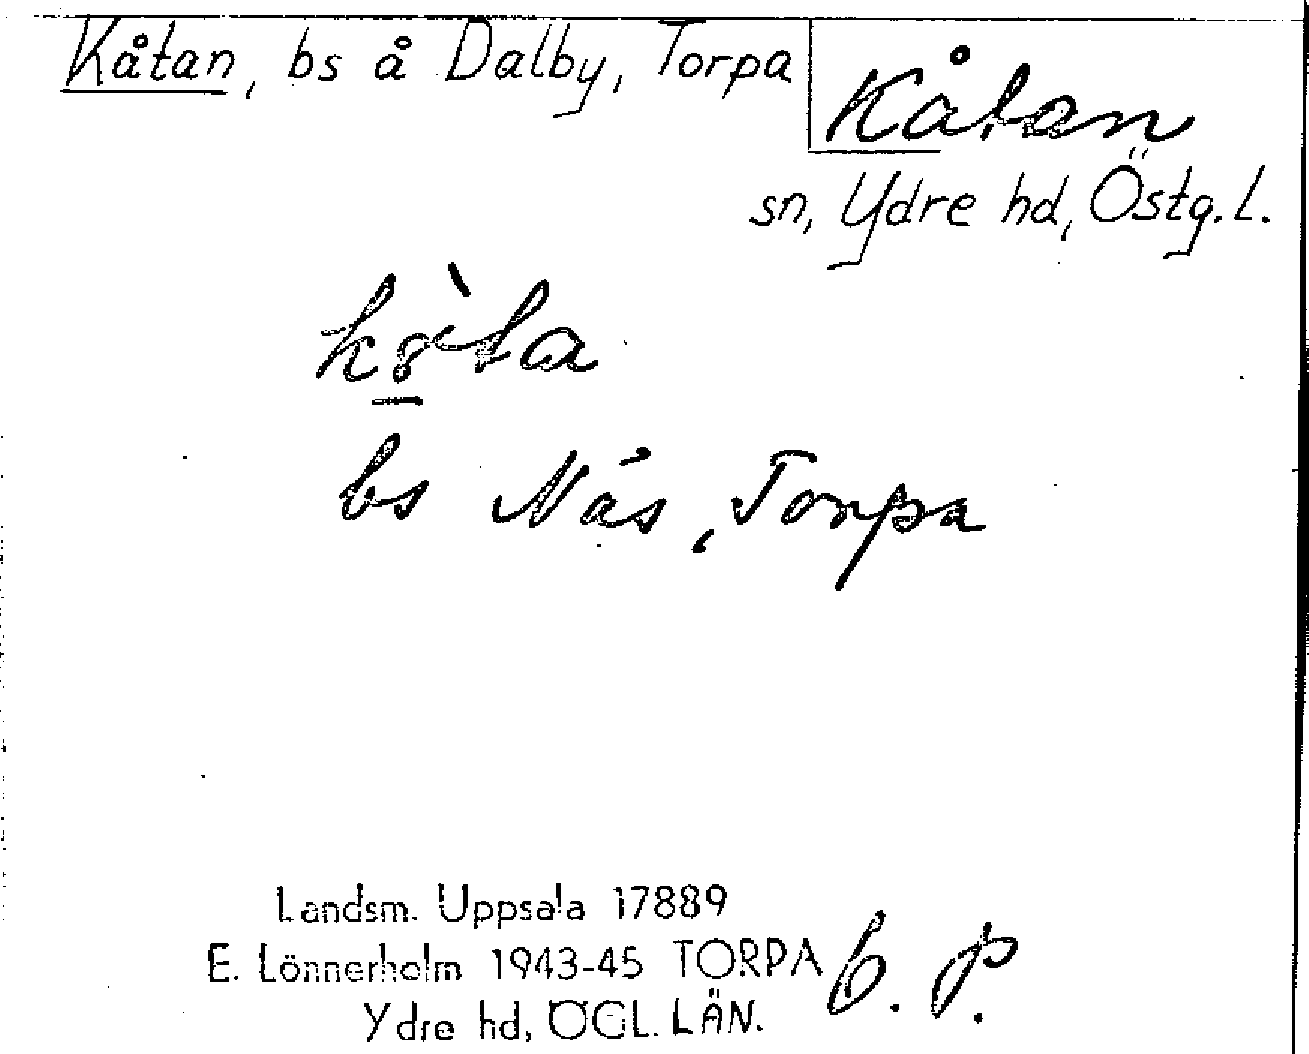 Kåtan, bs å Dalby, Torpa
Kåtan
sn, Ydre hd, Östg. l.
bs Näs, Torpa
Landsm. Uppsala 17889
E. Lönnerholm 1943-45 TORPA
Ydre hd, ÖGL. LÄN.